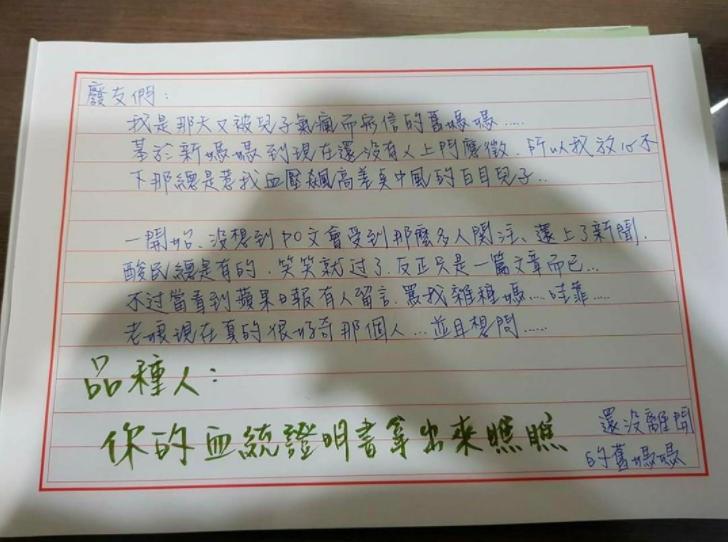 廢友們：
我是那天又被兒子氣瘋而發信的舊媽媽.....
基於新媽媽到現在還沒有人上門應徵．所以我放心不
下那總是惹我血壓飆高差點中風的白目兒子...
一開始、沒想到PO文會受到那麼多人関注、還上了新聞．
酸民總是有的．笑笑就过了．反正只是一篇文章而已...
不过當看到蘋果日報有人留言．罵我雜種媽....哇靠....
老娘現在真的很好奇那個人...並且想問.....
品種人：
你的血統證明書拿出來瞧瞧
還沒離開
的舊媽媽